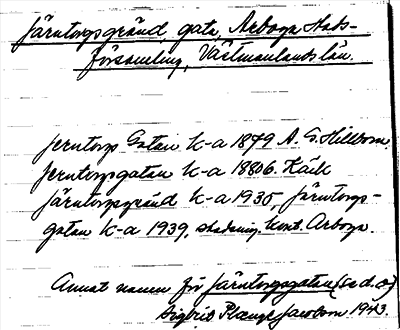 Järntorgsgränd, gata, Arboga stads-
församling, Västmanlands län.
Jerntorgs Gatan k-a 1879 A. G. Hillbom.
Jerntorgsgatan k-a 1880
Järntorgsgränd k-a 1935, Järntorgs-
gatan k-a 1939, stadsing. kont. Arboga.
Annat namn för Järntorgsgatan (se d.o)
Sigbrit Plange Jacobson 1943.